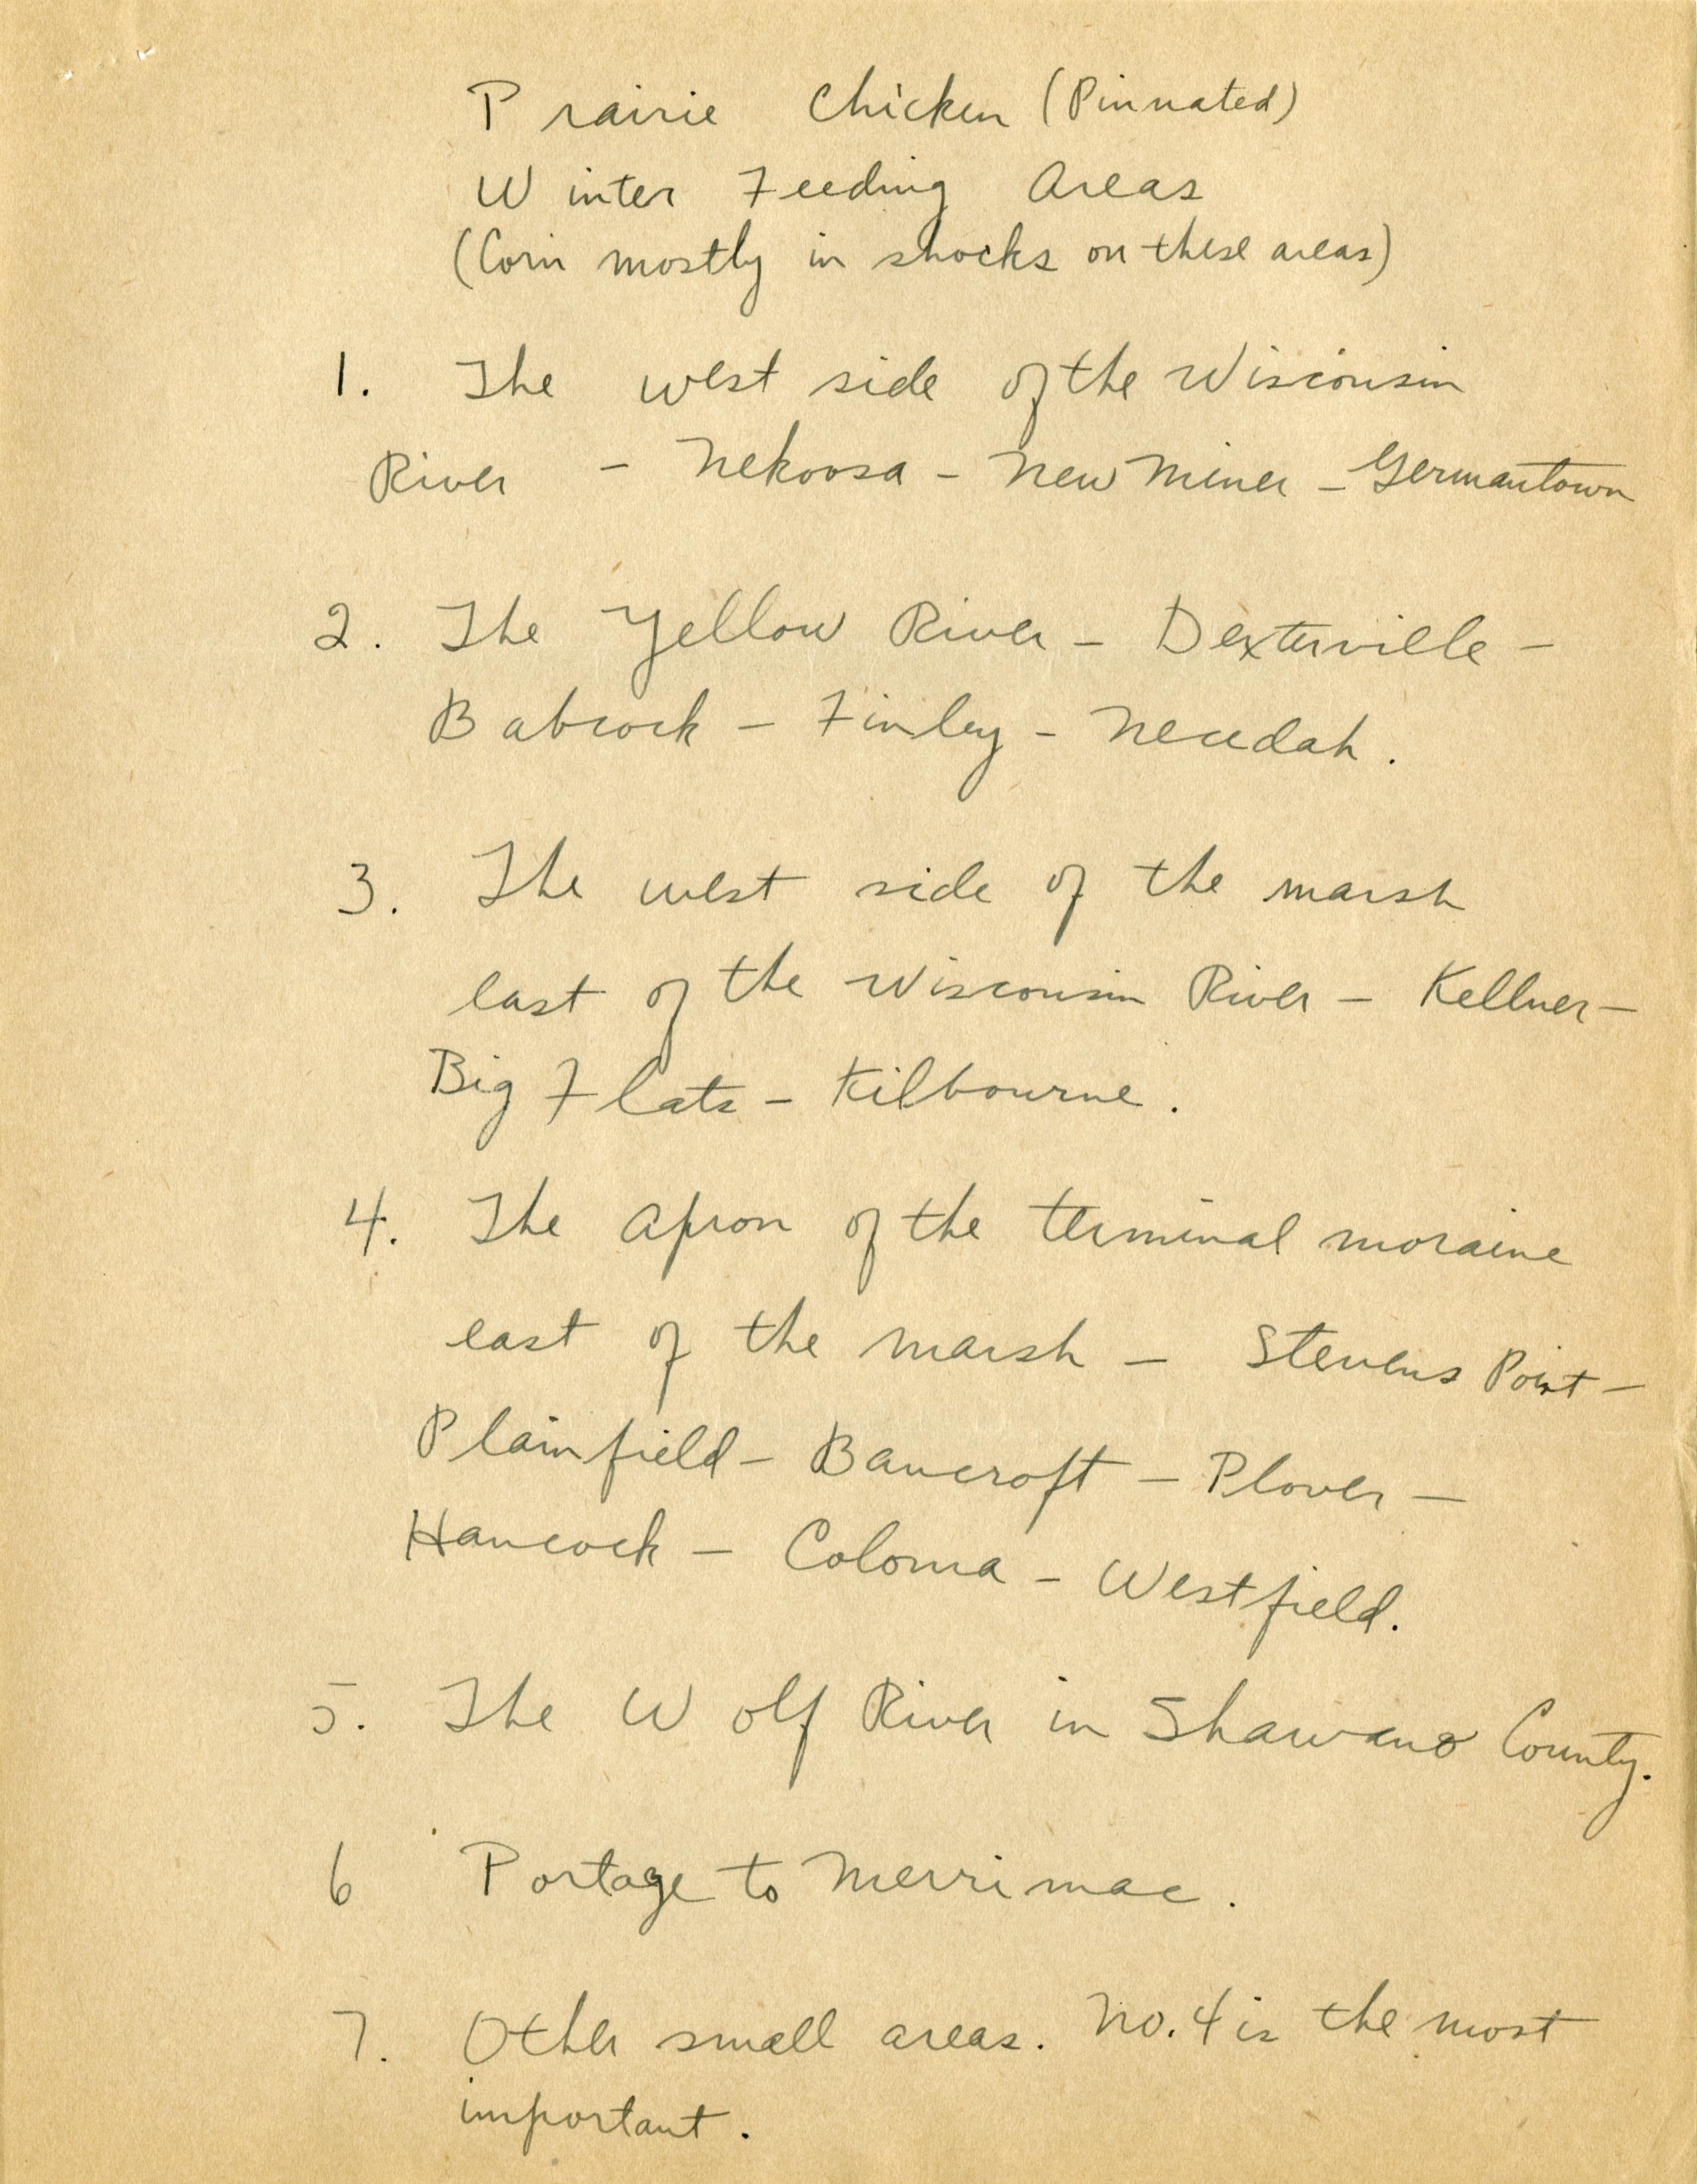 Prairie Chicken (Pinnated)
Winter Feeding Areas
(Corn mostly in shocks on these areas)
1. The west side of the Wisconsin
River - Nekoosa - New Miner - Germantown
2. The Yellow River - Dexterville -
Babcock - Finley - Necedah.
3. The west side of the marsh
east of the Wisconsin River - Kellner -
Big Flats - Kilbourne.
4. The apron of the terminal moraine
east of the marsh - Stevens Point -
Plainfield - Bancroft - Plover -
Hancock - Coloma - Westfield.
5. The Wolf River in Shawano County.
6 Portage to Merrimac.
7. Other small areas. No. 4 is the most
important.